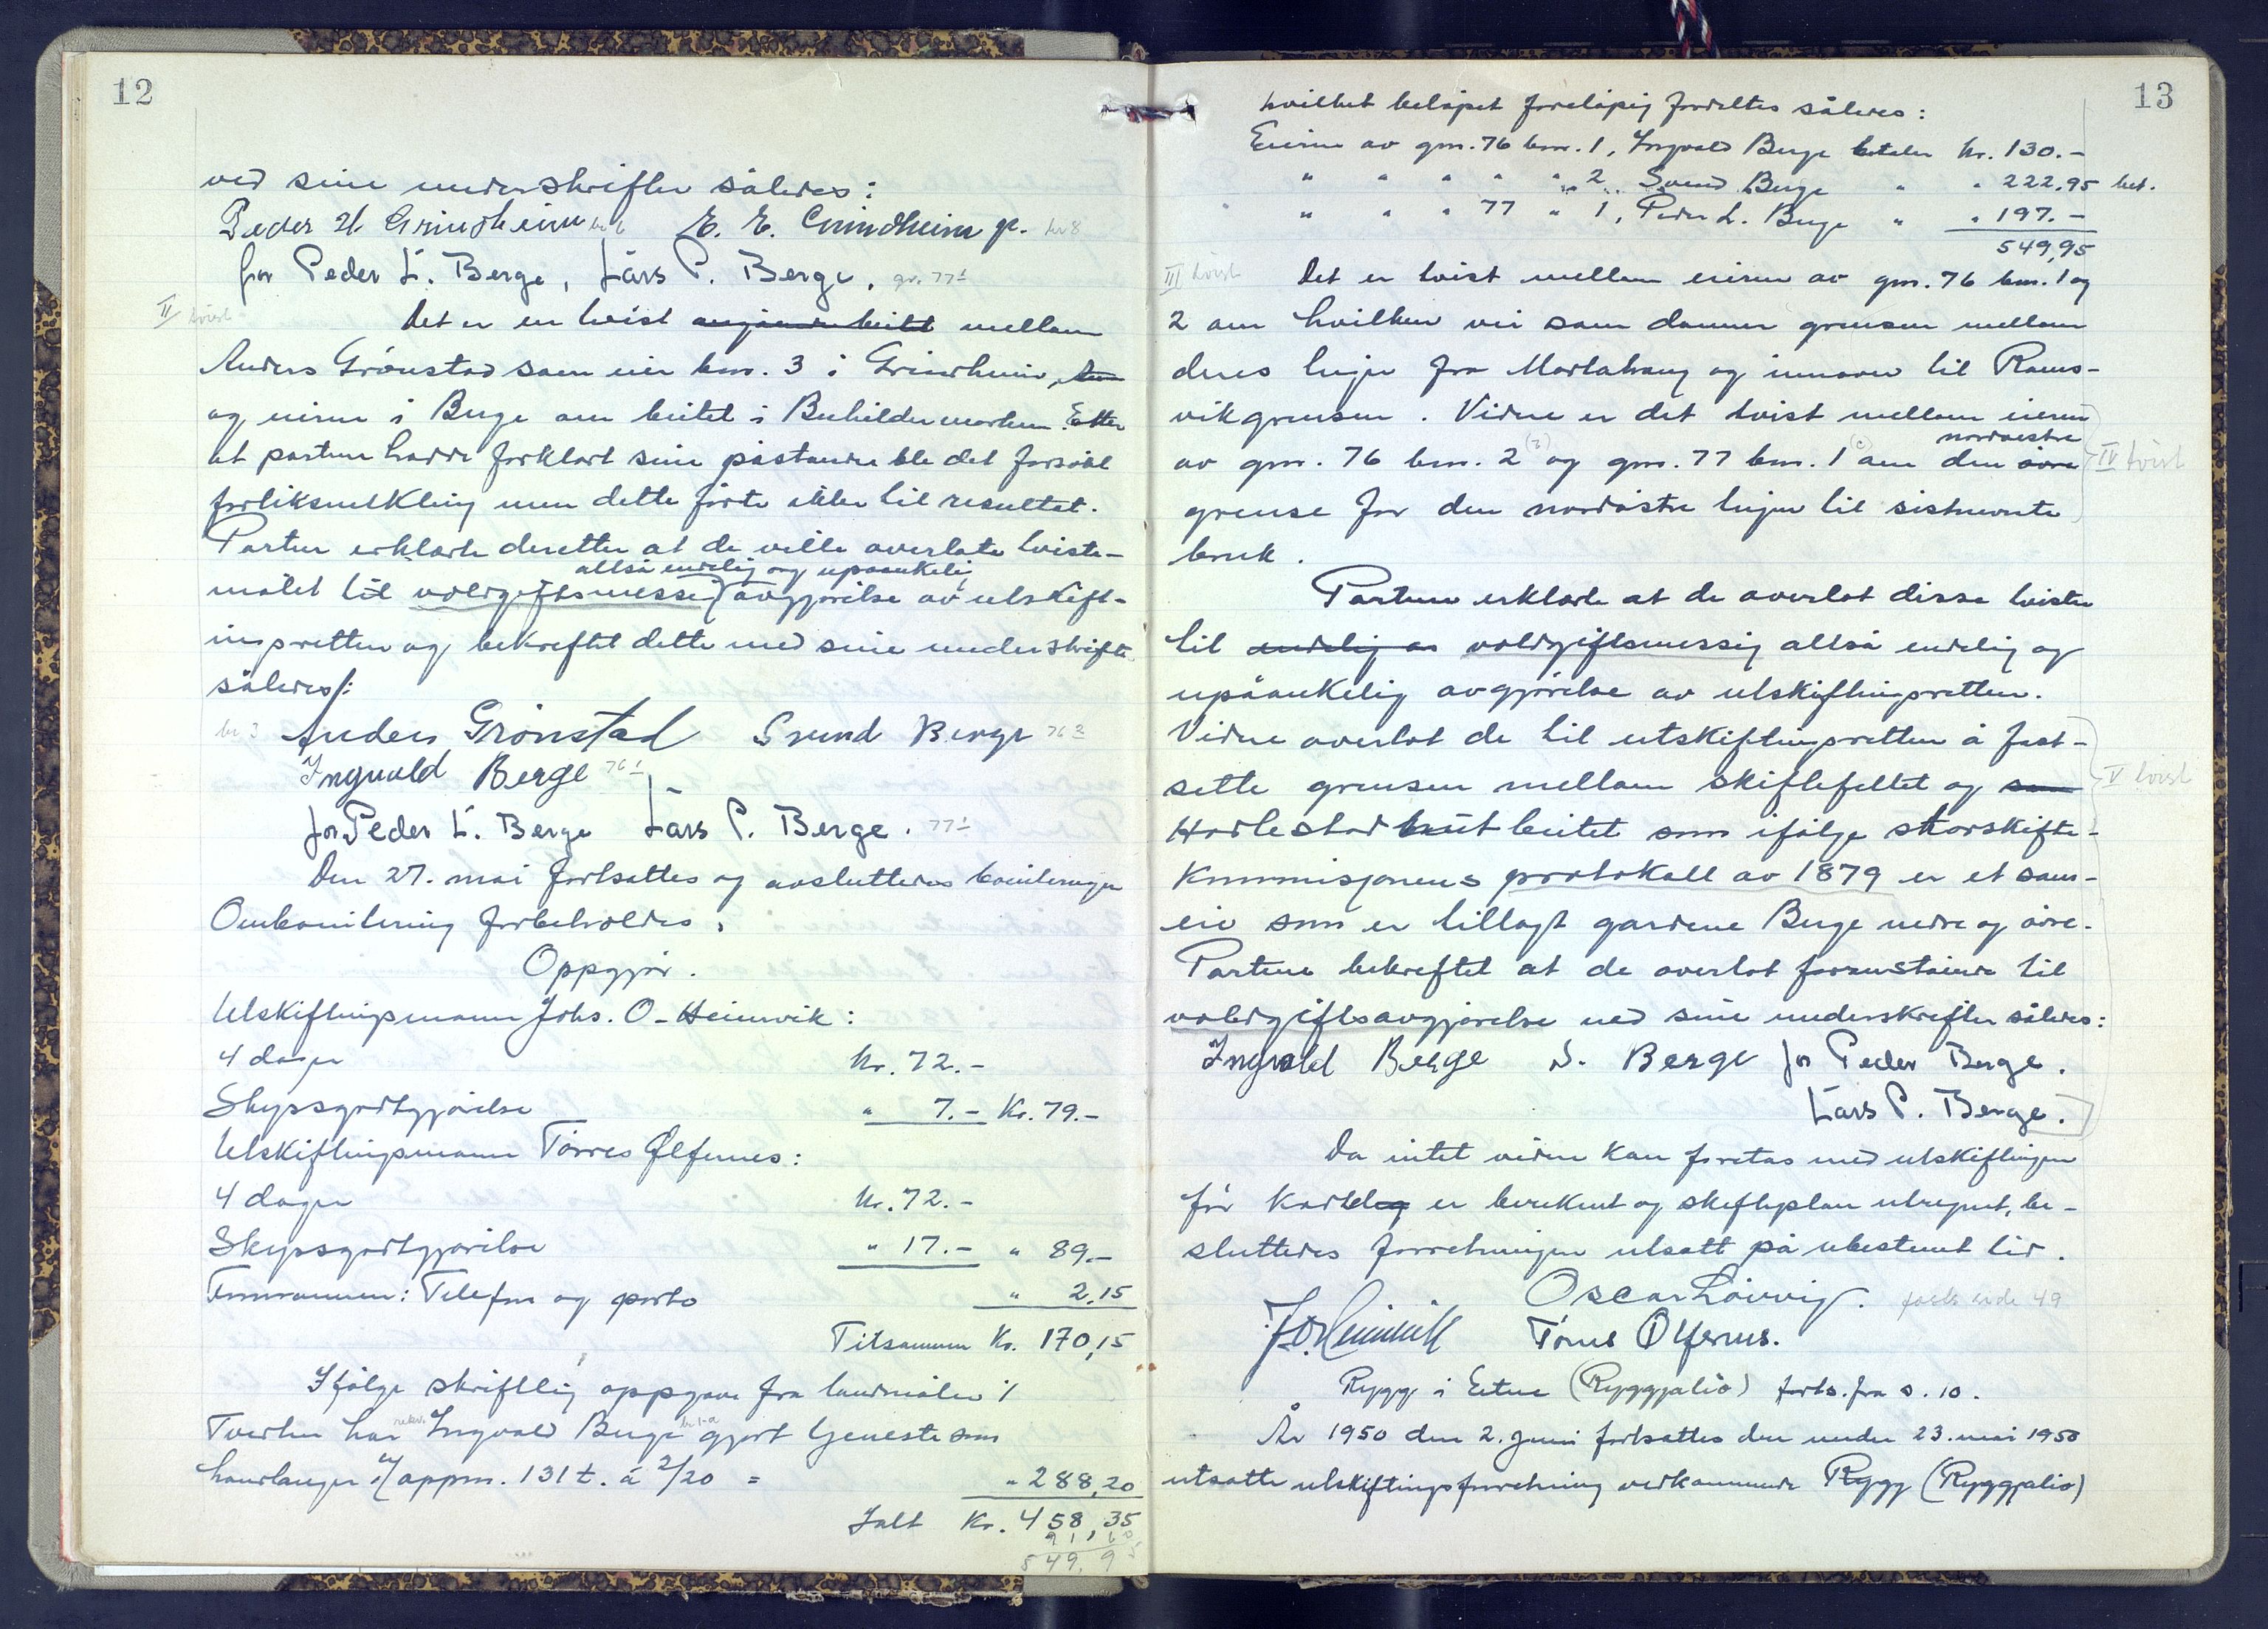 12
ved sine underskrifter således:
Peder H Grindheim br 6 E. E. Grindheim gr. br 8
for Peder L. Berge, Lars P. Berge. gr. 77¹
II tvist Det er en tvist angående beite mellom
Anders Grönstad som eier bnr. 3 i Grindheim,
og eierne i Berge om beitet i Buhildermarken. Etter
at partene hadde forklart sine påstander ble det forsökt
forliksmekling men dette förte ikke til resultat.
Partene erklærte deretter at de ville overlate tviste-
altså endelig og upåankelig
målet til voldgiftsmessig avgjörelse av utskift-
ingsretten og bekreftet dette med sine underskrifter
således:
br 3 Anders Grönstad Svend Berge 76²
Ingvald Berge 76¹
for Peder L. Berge Lars P. Berge. 77¹
Den 27. mai fortsattes og avsluttedes boniteringen
Ombonitering forbeholdes.
Oppgjör.
Utskiftingsmann Johs. O. Heimvik:
4 dager Kr. 72.-
Skyssgodtgjörelse " 7.- Kr. 79.-
Utskiftingsmann Törres Ølfernes:
4 dager Kr. 72.-
Skyssgodtgjörelse " 17.- " 89.-
Formannen: Telefon og porto " 2,15
Tilsammen Kr. 170,15
Ifölge skriftlig oppgave fra landmåler
Tveiten har rekv. Ingvald Berge br 1-a gjort tjeneste som
handlanger v/ oppm. 131 t. á 2/20 = " 288,20
Ialt Kr. 458,35
91,60
549,95
13
hvilket belöpet foreløpig fordeltes således:
Eieren av gnr. 76 bnr. 1, Ingvald Berge betaler kr. 130.-
" " " " " 2 Svend Berge " " 222,95 bet.
" " " 77 " 1, Peder L. Berge " " 197.-
549,95
III tvist Det er tvist mellom eierne av gnr. 76 bnr. 1 og
2 om hvilken vei som danner grensen mellom
deres teiger fra Martahaug og innover til Rams-
vikgrensen. Videre er det tvist mellom eieren
nordöstre
av gnr. 76 bnr. 2 og gnr. 77 bnr. 1 om den övre IV tvist
grense for den nordöstre teigen til sistnevnte
bruk.
Partene erklærte at de overlot disse tvister
til endelig og voldgiftsmessig altså endelig og
upåankelig avgjörelse av utskiftingsretten.
Videre overlot de til utskiftingsretten å fast-
sette grensen mellom skiftefeltet og som V tvist
Harlestad beitet som ifölge storskifte-
kommisjonens protokoll av 1879 er et sam-
eie som er tillagt gardene Berge nedre og övre.
Partene bekreftet at de overlot foranstående til
voldgiftsavgjörelse ved sine underskrifter således:
Ingvald Berge S. Berge for Peder Berge.
Lars P. Berge.
Da intet videre kan foretas med utskiftingen
för kartlag er bereknet og skifteplan utregnet, be-
sluttedes forretningen utsatt på ubestemt tid.
Oscar Löining. forts. side 49
J. O. Heimvik Törres Ølfernes.
Rygg i Etne (Ryggjalio) forts. fra s. 10.
År 1950 den 2. Juni fortsattes den under 23. mai 1950
utsatte utskiftingsforretning vedkommende Rygg (Ryggjalio)